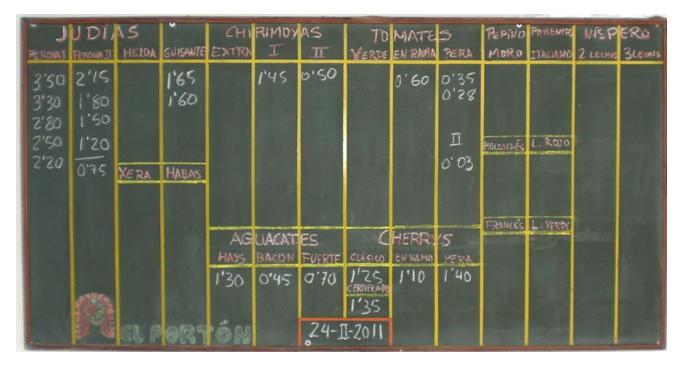 JUDÍAS CHIRIMOYAS TOMATES PEPINO PIMIENTOS NÍSPERO
PERONA I PERONA II HELDA GUISANTE EXTRA I II VERDE EN RAMA PERA MORO ITALIANO 2 LECHOS 3 LECHOS
3'50 2'15 1'65 1'45 0'50 0'60 0'35
3'30 1'80 1'60 0'28
2'80 1'50
2'50 1'20 II HOLANDÉS L. ROJO
2'20 0'75 XERA HABAS 0'03
FRANCÉS L. VERDE
AGUACATES CHERRYS
HASS BACON FUERTE CLÁSICO EN RAMO PERA
1'30 0'45 0'70 1'25 1'10 1'40
CERTIFICADO
1'35
EL PORTÓN 24-II-2011